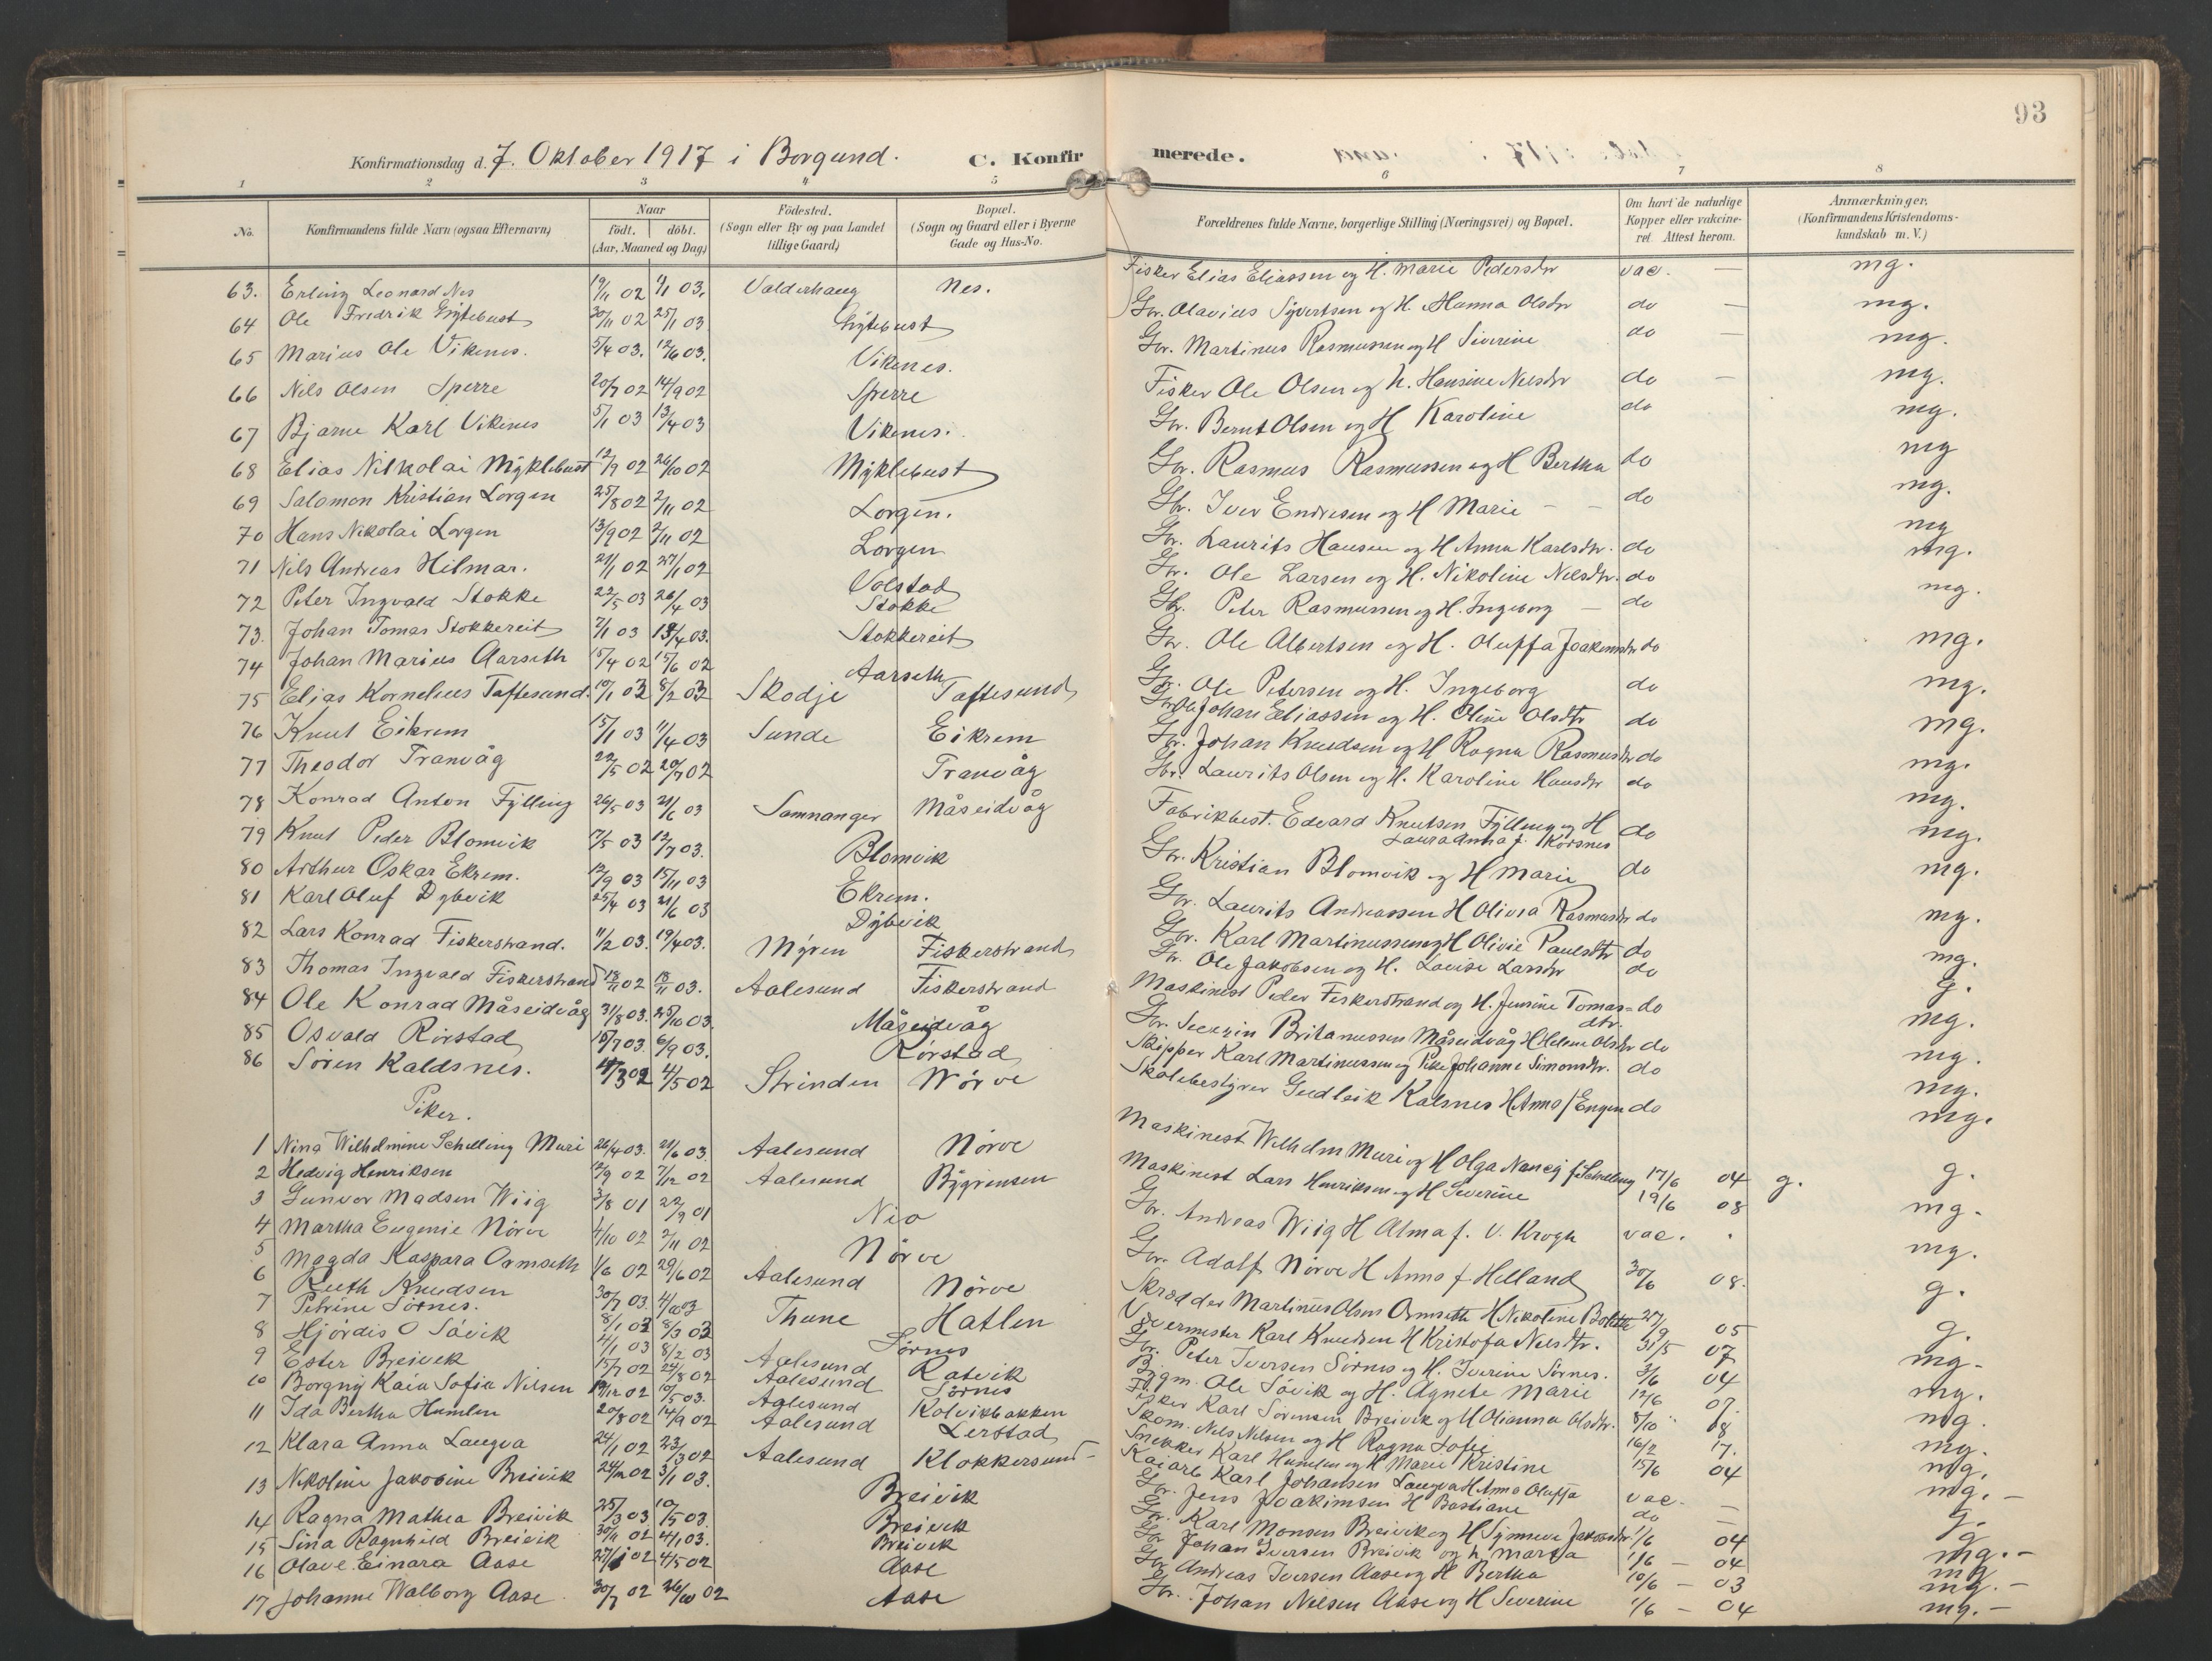 93
Konfirmationsdag d. 7. Oktober 1917 i Borgund. C. Konfirmerede.
1 2 3 4 5 6 7 8
No. Konfirmandens fulde Navn (ogsaa Efternavn) Naar født. døbt. (Aar, Maaned og Dag) Fødested. (Sogn eller By og paa Landet tillige Gaard) Bopæl. (Sogn og Gaard eller i Byerne Gade og Hus-No. Forældrenes fulde Navne, borgerlige Stilling (Næringsvei) og Bopæl. Om havt de naturlige Kopper eller vaccineret. Attest herom. Anmærkninger. (Konfirmandens Kristendomskundskab m. V.)
63. Erling Leonard Nes 19/11 02 1/1 03. Valderhaug Nes. Fisker Elias Eliassen og H. Marie Pedersdtr vac. — mg.
64 Ole Fredrik Gjytebust 30/11 02 25/1 03 Gjytebust Gbr. Olavius Syvertsen og H. Hanna Olsdtr do — mg.
65 Marius Ole Vikenes. 5/4 03. 12/6 03. Vikenes. Gbr. Martinus Rasmussen og H Siverine do — mg.
66 Nils Olsen Sperre 20/7 02 14/9 02 Sperre Fisker Ole Olsen og h. Hansine Nilsdtr do — mg.
67 Bjarne Karl Vikenes 5/1 03 13/4 03 Vikenes. Gbr. Bernt Olsen og H Karoline do mg.
68 Elias Nilkolai Myklebust 12/9 02 26/10 02 Myklebust Gbr. Rasmus Rasmussen og H Bertha do mg
69 Salomon Kristian Lorgen 25/8 02 2/11 02 Lorgen. Gbr. Iver Endresen og H Marie — — do mg.
70 Hans Nikolai Lorgen 13/9 02 2/11 02 Lorgen Gbr. Laurits Hansen og H Anna Karlsdtr. do mg
71 Nils Andreas Hilmar. 21/1 02 27/1 02 Volstad Gbr. Ole Larsen og H. Nikoline Nilsdtr. do mg.
72 Peter Ingvald Stokke 22/5 03 26/4 03 Stokke Gbr. Peter Rasmussen og H. Ingeborg — do mg.
73. Johan Tomas Stokkereit 7/1 03 13/4 03. Stokkereit Gbr. Ole Albertsen og H. Oluffa Joakimsdtr do mg.
74 Johan Marius Aarseth 15/4 02 15/6 02 Aarseth Gbr. Ole Petersen og H. Ingeborg do mg.
75 Elias Kornelius Taftesund. 10/1 03 8/2 03 Skodje Taftesund Gbr Ole Johan Eliassen og H. Oline Olsdtr do mg.
76 Knut Eikrem 15/1 03 11/4 03 Sunde Eikrem Gbr. Johan Knudsen og H Ragna Rasmusdtr do mg.
77 Theodor Tranvåg 22/5 02 20/7 02 Tranvåg Gbr. Laurits Olsen og H. Karoline Hansdtr do mg.
78 Konrad Anton Fylling 26/5 03 21/6 03 Samnanger Måseidvåg Fabrikbest. Edvard Knutsen Fylling og H Laura Anna f. Korsnes do mg.
79 Knut Peder Blomvik 17/5 03 12/7 03. Blomvik Gbr. Kristian Blomvik og H Marie do mg.
80 Arthur Oskar Ekrem. 12/9 03 15/11 03 Ekrem. Gbr. Laurits Andreassen H Olivia Rasmusdtr do mg.
81 Karl Oluf Dybvik 25/4 03 21/6 03 Dybvik Gbr. Karl Martinussen og H Olivie Paulsdtr do mg.
82 Lars Konrad Fiskerstrand. 11/2 03. 19/4 03. Myren Fiskerstrand Gbr. Ole Jakobsen og H. Lovise Larsdtr do g.
83 Thomas Ingvald Fiskerstrand 18/11 02 18/11 03. Aalesund Fiskerstrand Maskinist Peder Fiskerstrand og H. Jensine Tomas=dtr. do mg.
84 Ole Konrad Måseidvåg 31/8 03. 25/10 03. Måseidvåg Gbr. Severin Britanussen Måseidvåg H Helene Olsdtr do mg.
85 Osvald Rörstad 15/7 03. 6/9 03. Rörstad Skipper Karl Martinussen og Pike Johanne Simonsdtr. do mg.
86 Sören Kaldsnes. 4/3 02 4/5 02 Strinden Nörve Skolebestyrer Gudleik Kalsnes H Anna f Engen do mg.
Piker.
1 Nina Wilhelmine Schelling Muri 26/4 03. 21/6 03. Aalesund Nörve Maskinist Wilhelm Muri og H Olga Nancy f Schelling 17/6 04 g. g.
2 Hedvig Henriksen 12/9 02 7/12 02 Aalesund Bygrensen Maskinist Lars Henriksen og H Severine 19/6 08 mg.
3 Gunvor Madsen Wiig 3/8 01 22/9 01 Nio Gbr. Andreas Wiig H Alma f. V. Krogh vac. mg.
4 Martha Eugenie Nörve 4/10 02 2/11 02 Nörve Gbr. Adolf Nörve H Anna f Helland 30/6 08. g.
5 Magda Kaspara Ormseth 1/6 02 29/6 02 Aalesund Nörve Skrædder Martinus Olsen Ormseth H Nikoline Bolette 27/9 05 g.
6 Ruth Knudsen 30/7 03. 4/10 03 Thune Hatlen Værmester Karl Knudsen H Kristofa Nilsdtr. 31/5 07 mg.
7 Petrine Sörnes. 8/1 03 8/3 03 Sörnes Gbr. Peter Iversen Sörnes og H. Iverine Sörnes. 3/6 04 mg.
8 Hjördis O Sövik 4/1 03 8/2 03 Aalesund Ratvik Bygm. Ole Sövik og H. Agnete Marie 12/6 07. mg.
9 Ester Breivik 15/7 02 24/8 02 Aalesund Sörnes Fisker Karl Sörensen Breivik og H Olianna Olsdtr. 8/10 08 mg.
10 Borgny Kaia Sofia Nilsen 19/12 02 10/5 03. Aalesund Kolvikbakken Skom. Nils Nilsen og H Ragna Sofie 16/2 17. mg.
11 Ida Bertha Humlen 20/8 02 14/9 02 Aalesund Lerstad Snekker Karl Humlen og H Marie Kristine 15/6 04 mg. —
12 Klara Anna Langva 24/1 02 23/3 02 Aalesund Klokkersund Kaiarb Karl Johansen Langva H Anna Oluffa vac. — g.
13 Nikoline Jakobine Breivik 24/12 02 3/1 03. Breivik Gbr. Jens Joakimsen H Bastiane do — g
14 Ragna Mathea Breivik 25/3 03 10/5 03. Breivik Gbr. Karl Monsen Breivik og H Synneve Jakobsdtr. 1/6 04 mg. —
15 Sina Ragnhild Breivik 30/11 02 4/1 03. Breivik Gbr Johan Iversen Breivik og h. Marta 1/6 — 04 mg
16 Olave Einara Aase 27/1 02 4/5 02 Aase Gbr Andreas Iversen Aase og H Bertha 10/6 — 03 mg. —
17 Johanne Walborg Aase 30/7 02 26/10 02 Aase Gbr. Johan Nilsen Aase og H Severine 1/6 — 04 mg. —